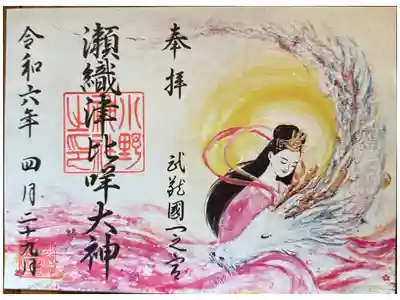 奉拝
武蔵國一之宮
瀬織津比咩大神
小野
之印
令和六年 四月二十九日